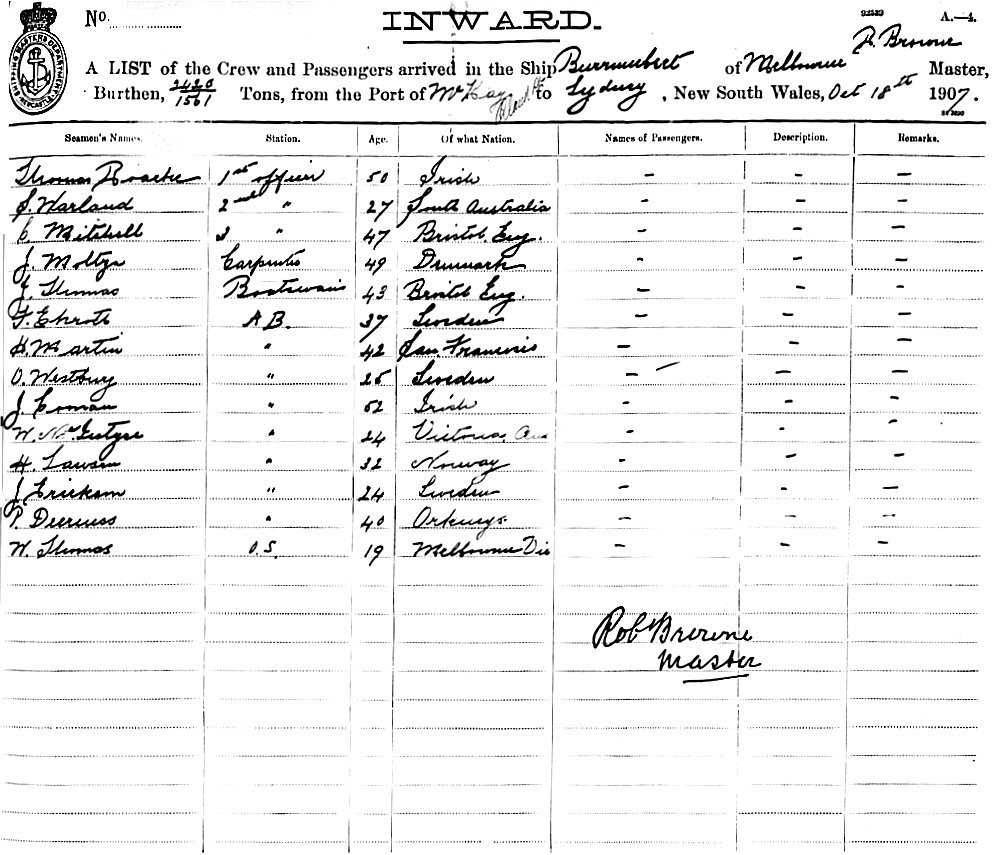 No.
INWARD.
92539
A.—4.
R. Browne
A LIST of the Crew and Passengers arrived in the Ship Burrumbeet of Melbourne Master,
Burthen, 2420/1561 Tons, from the Port of McKay to Sydney, New South Wales, Oct 18th 1907.
SHIPPING MASTERS DEPARTMENT NEWCASTLE
Seamen's Names. Station. Age. Of what Nation. Names of Passengers. Description. Remarks.
Thomas 1st officer 50 Irish - - -
J. Warland 2nd " 27 South Australia - - -
C. Mitchell 3 " 47 Bristol Eng. - - -
J. Carpenter 49 Denmark - - -
J. Thomas Boatswain 43 Bristol Eng. - - -
A B. 37 Sweden - - -
H. Martin " 42 San Francisco - - -
O. Westbury " 25 Sweden - - -
J. " 52 Irish - - -
W. " 24 Victoria, Aus - - -
H. Lawsen " 32 Norway - - -
J. Erickson " 24 Sweden - - -
P. Deerness " 40 Orkneys - - -
W. Thomas O.S. 19 Melbourne Vic - - -
Robt Browne
Master